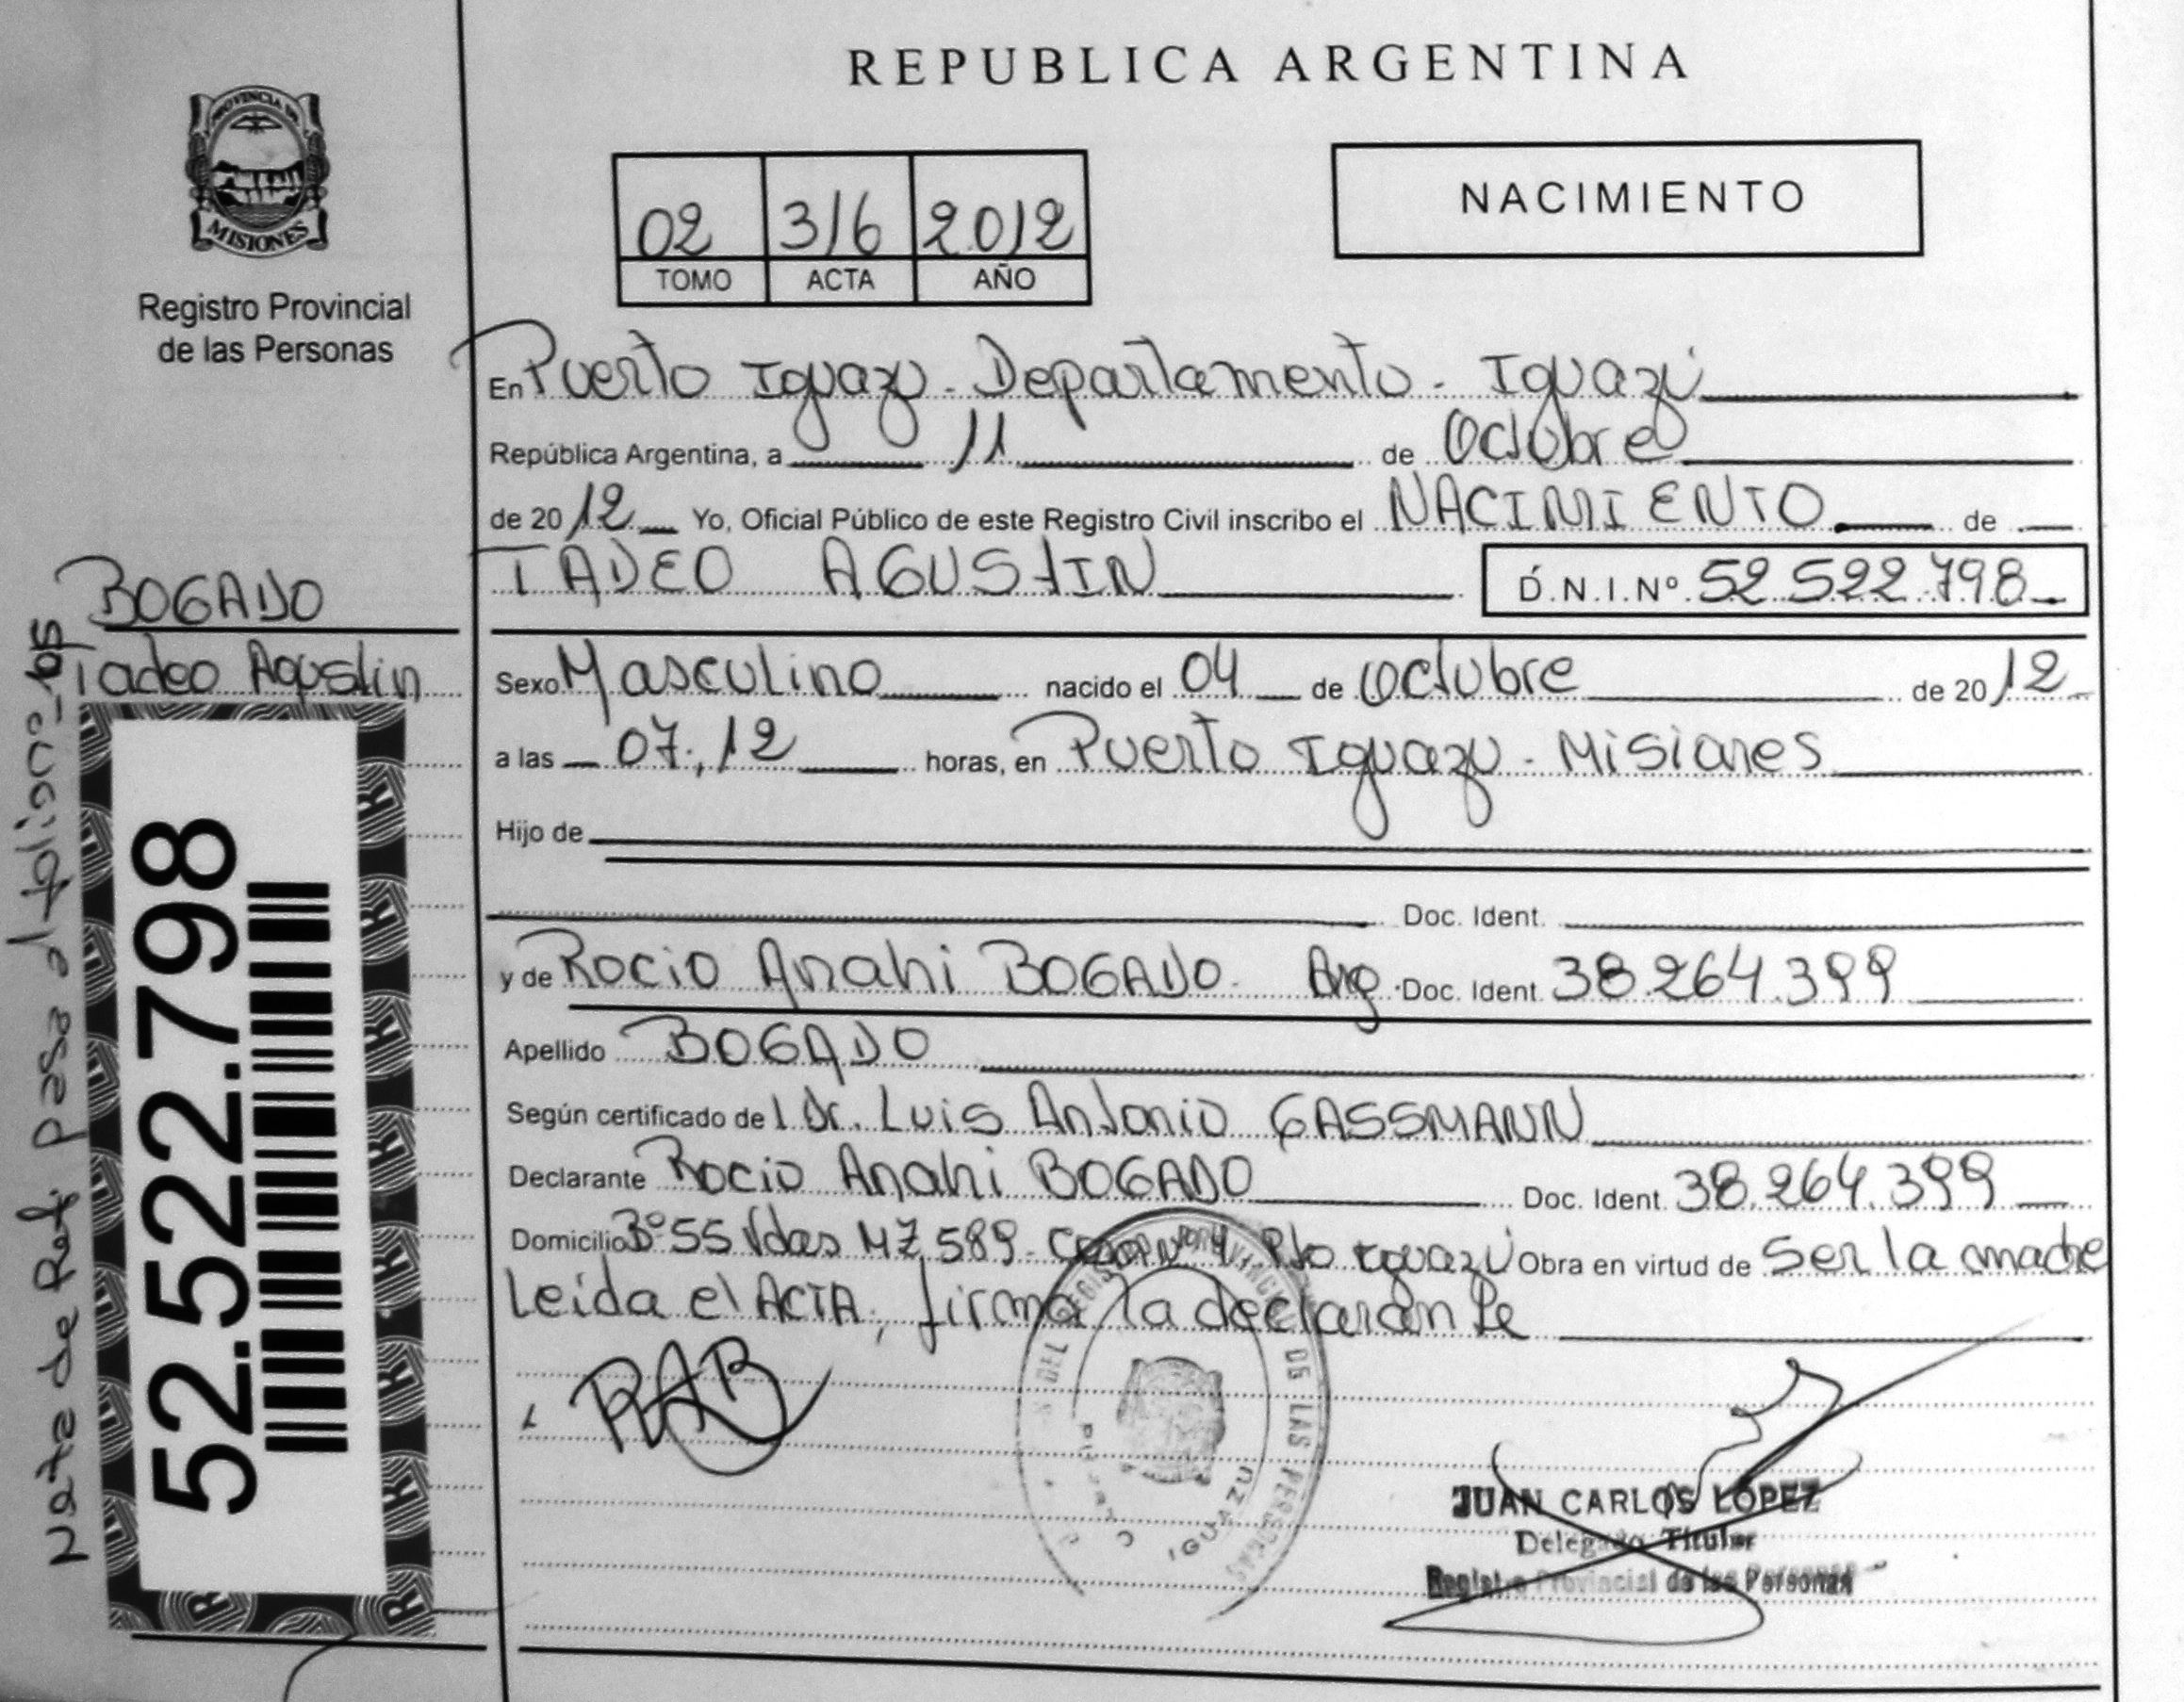 REPUBLICA ARGENTINA
PROVINCIA DE
MISIONES
Registro Provincial
de las Personas
02 316 2012
TOMO ACTA AÑO
NACIMIENTO
En Puerto Iguazu - Departamento - Iguazú
República Argentina, a 11 de Octubre
de 2012 Yo, Oficial Público de este Registro Civil inscribo el NACIMIENTO de
TADEO AGUSTIN D.N.I.Nº 52.522.798
BOGADO
Tadeo Agustin
Sexo Masculino nacido el 04 de Octubre de 2012
a las 07,12 horas, en Puerto Iguazu - Misiones
Hijo de
Doc. Ident.
y de Rocio Anahi BOGADO. Arg. Doc. Ident. 38.264.399
Apellido BOGADO
Según certificado del Dr. Luis Antonio GASSMANN
Declarante Rocio Anahi BOGADO Doc. Ident. 38.264.399
Domicilio Bº 55 Vdas MZ 589 - Casa Nº 4 Pto Iguazú Obra en virtud de Ser la madre
Leida el ACTA, firma la declarante
RAB
DEL REGISTRO PROVINCIAL DE LAS PERSONAS
PUERTO IGUAZU
JUAN CARLOS LOPEZ
Delegado Titular
Registro Provincial de las Personas
52.522.798
Nota de Ref. pasa al folio